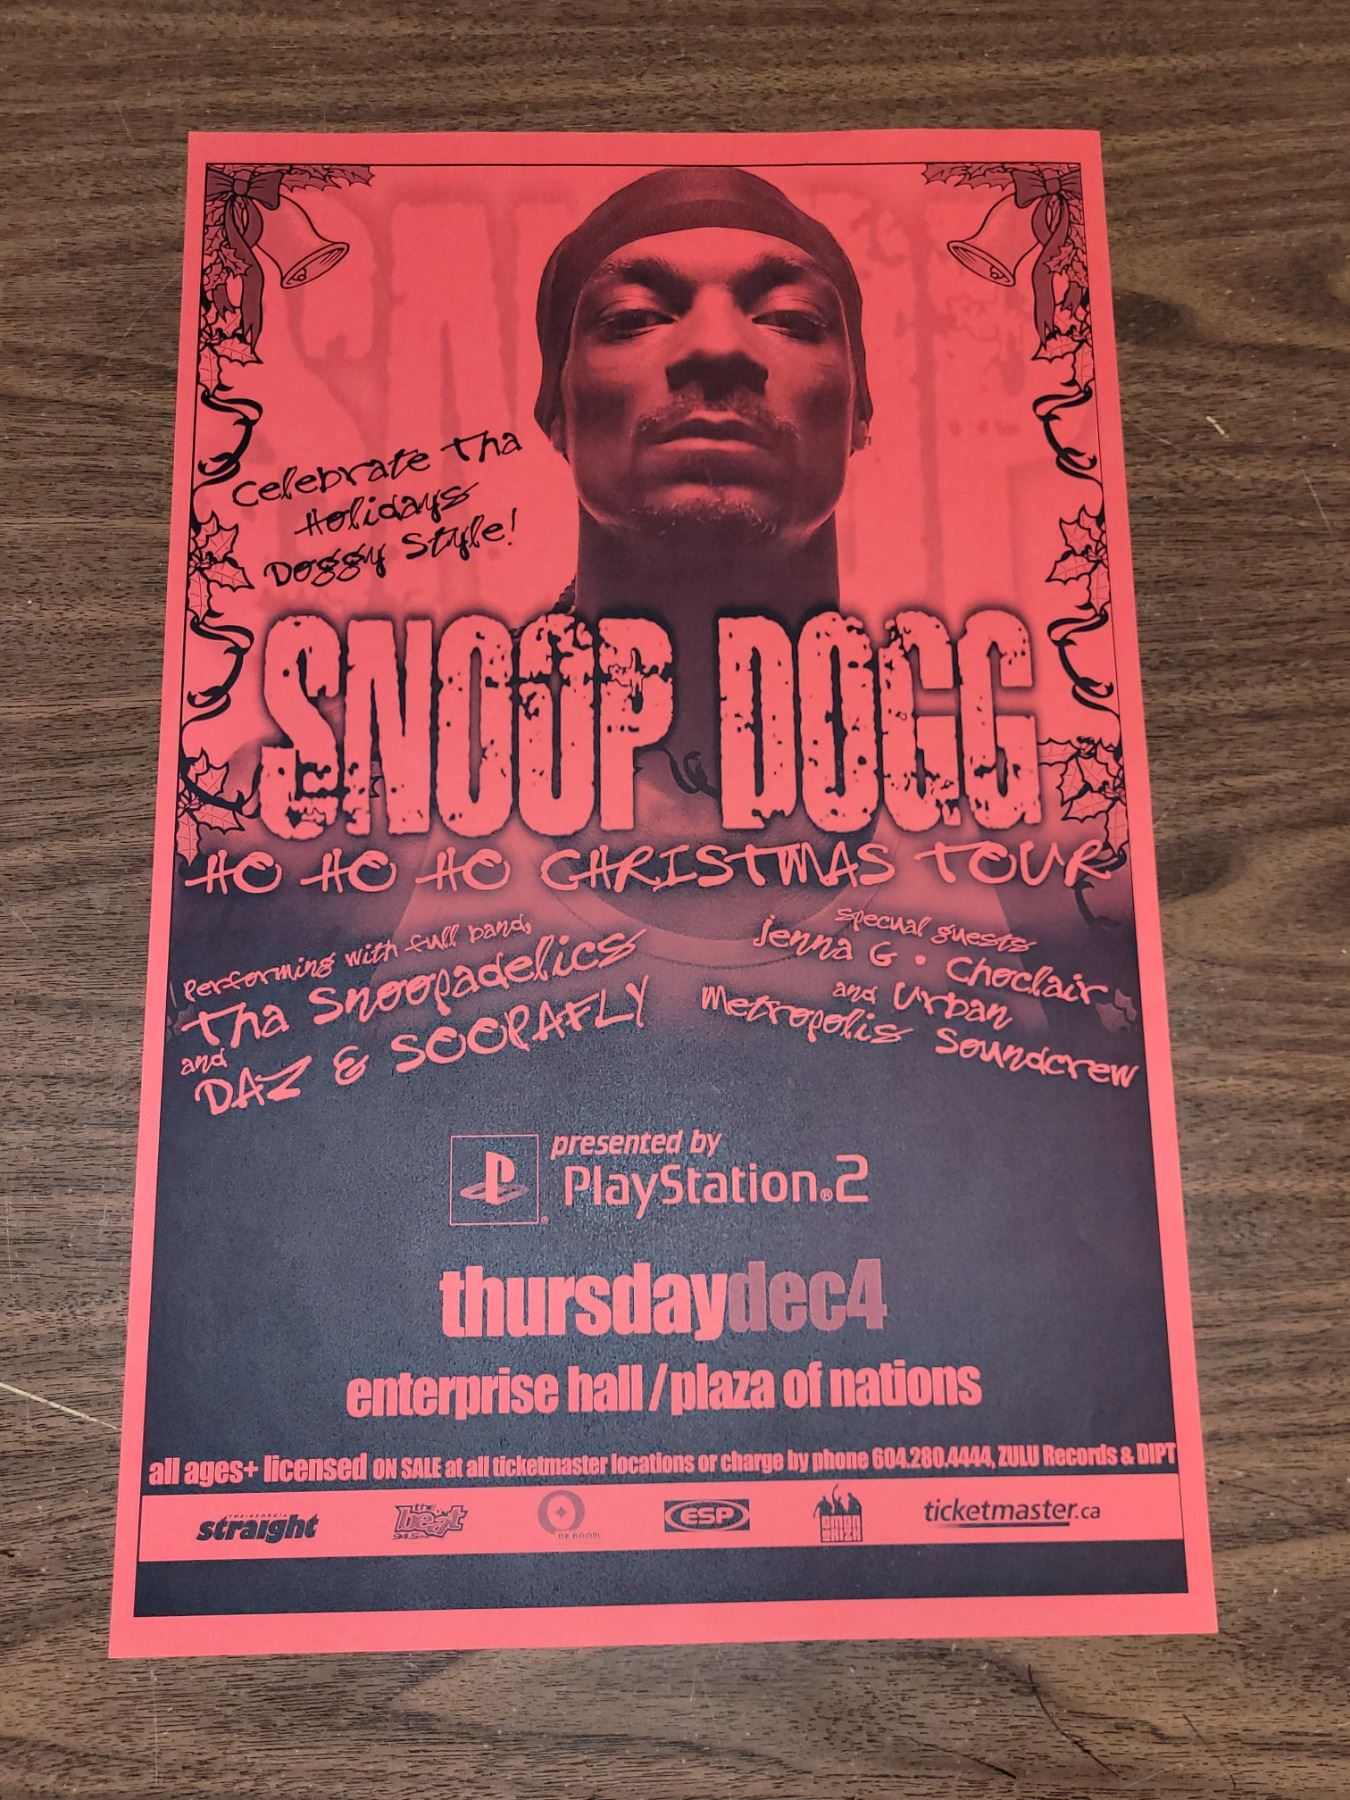 Celebrate Tha
Holidays
Doggy Style!
SNOOP DOGG
HO HO HO CHRISTMAS TOUR
Performing with full band,
Tha Snoopadelics
and
DAZ & SOOPAFLY
special guests
Jenna G • Choclair
and Urban
Metropolis Soundcrew
presented by
PlayStation®2
thursdaydec4
enterprise hall/plaza of nations
all ages+ licensed ON SALE at all ticketmaster locations or charge by phone 604.280.4444, ZULU Records & DIPT
THE GEORGIA
straight
the
beat
94.5 FM
ESP
ticketmaster.ca